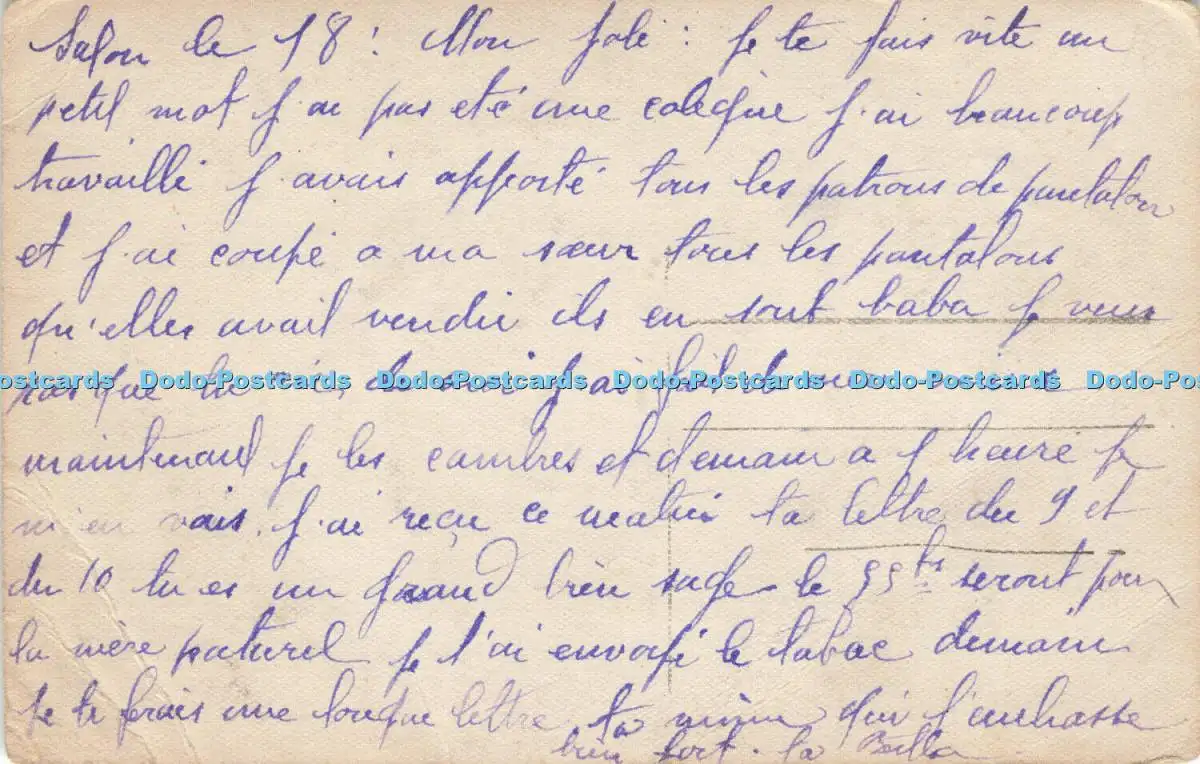 Salon le 18 : Mon Joli : Je te fais vite un
petit mot J'ai pas eté une J'ai beaucoup
travaillé J'avais apporté tous les patrons de pantalon
et J'ai coupé a ma sœur tous les pantalons
qu'elles avail vendu ils en sont baba Je veux
pas que J'ai fait
Dodo-Postcards Dodo-Postcards Dodo-Postcards Dodo-Postcards Dodo-Postcards
maintenant Je les cambres et demain a 1 heure Je
m'en vais. J'ai reçu ce matin ta lettre du 9 et
du 10 tu es un grand bien sage le seront pour
la mère paturel Je t'ai envoyé le tabac demain
Je te ferais une longue lettre ta mimi qui t'embrasse
bien fort. ta